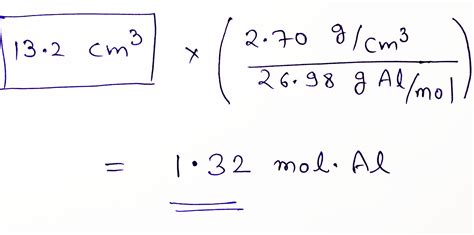 13.2 cm³ × ( 2.70 g/cm³ / 26.98 g Al/mol )
= 1.32 mol. Al